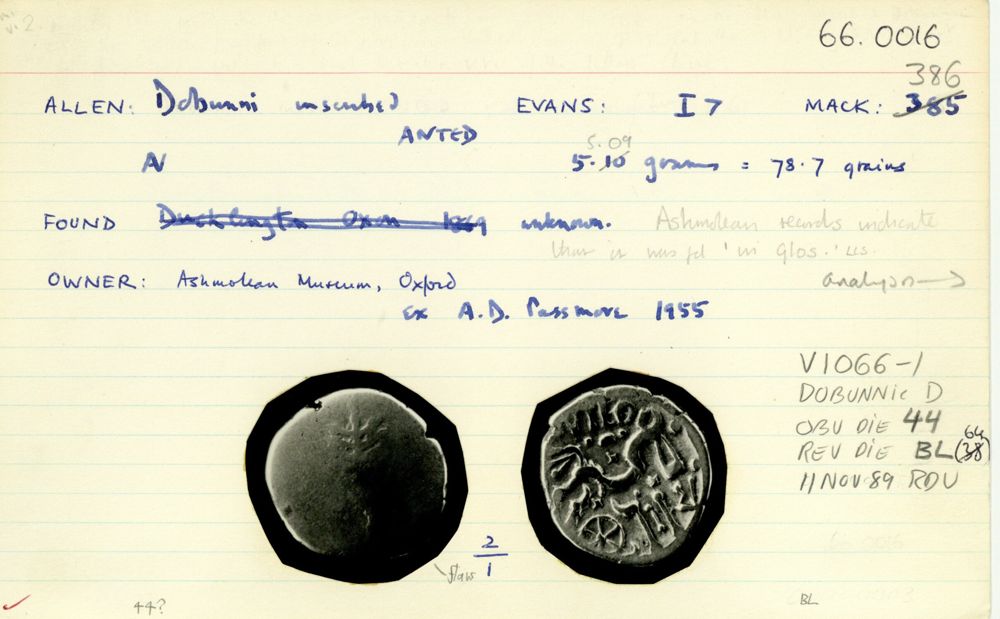 66.0016
386
ALLEN: Dobunni inscribed EVANS: I 7 MACK: 385
ANTED
5.09
N 5.10 grams = 78.7 grains
FOUND Ducklington Oxon 1869 unknown. Ashmolean records indicate
that it was fd 'in Glos.'
OWNER: Ashmolean Museum, Oxford analysis →
ex A.D. Passmore 1955
V1066-1
DOBUNNIC D
OBV DIE 44
64
REV DIE BL (38)
11 NOV 89 RDV
2
1
flaw
44? BL